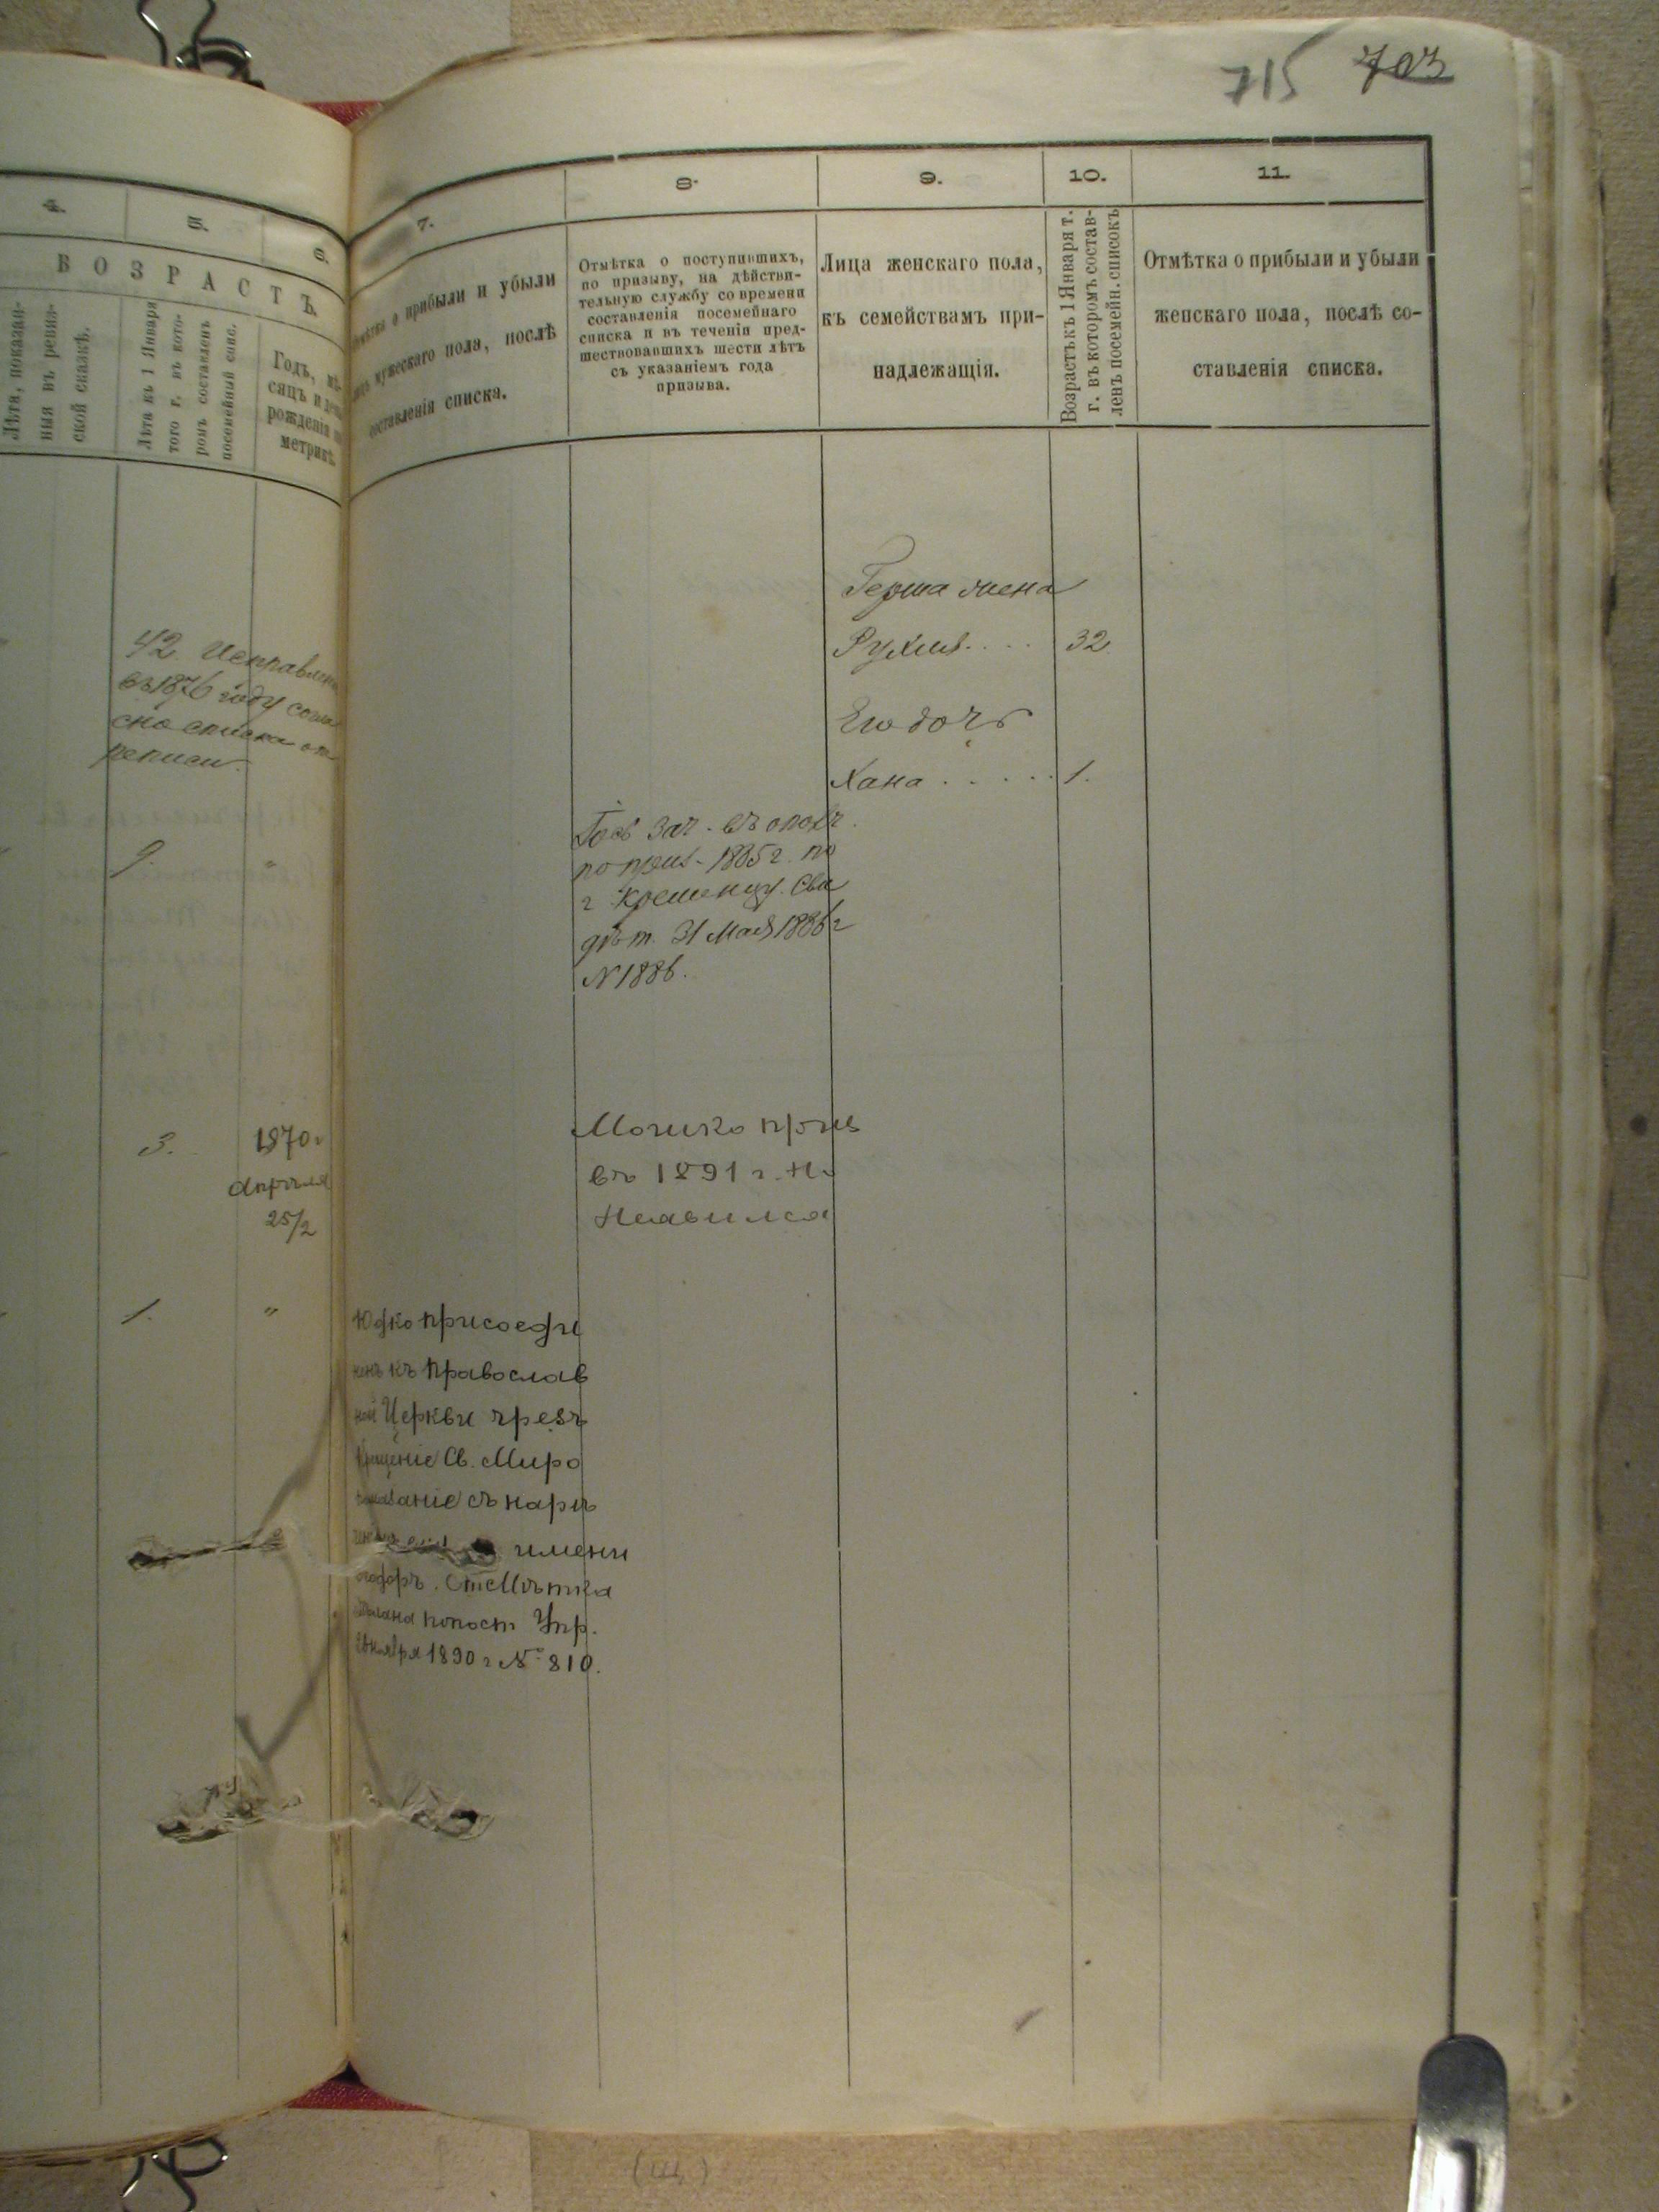 715 703
4.
5.
6.
ВОЗРАСТЪ.
Лѣта, показан-
ныя въ ревиз-
ской сказкѣ.
Лѣта къ 1 Января
того г. въ кото-
ромъ составленъ
посемейный спис.
Годъ, мѣ-
сяцъ и день
рожденія по
метрикѣ.
7.
8.
9.
10.
11.
о прибыли и убыли
мужескаго пола, послѣ
составленія списка.
Отмѣтка о поступившихъ,
по призыву, на дѣйстви-
тельную службу со времени
составленія посемейнаго
списка и въ теченіи пред-
шествовавшихъ шести лѣтъ
съ указаніемъ года
призыва.
Лица женскаго пола,
къ семействамъ при-
надлежащія.
Возрастъ къ 1 Января т.
г. въ которомъ состав-
ленъ посемейн. списокъ
Отмѣтка о прибыли и убыли
женскаго пола, послѣ со-
ставленія списка.
42. Исправлено
въ 1876 году
сно списка
Герша жена
32
Его дочь
Хана 1.
9. "
зач. въ ополч.
по приз. 1885 г. по
г Кременцу. Сви
дѣт. 31 Мая 1886 г
N 1886.
3. 1870 г
Апрѣля
25/2
Мошко приз
въ 1891 г.
Неявился
1. "
Юдко присоеди
ненъ къ Православ
ной Церкви чрезъ
Крещеніе Св. Миро
помазаніе съ нарѣ
имени
Отмѣтка
сдѣлана по пост Упр.
1890 г № 810.